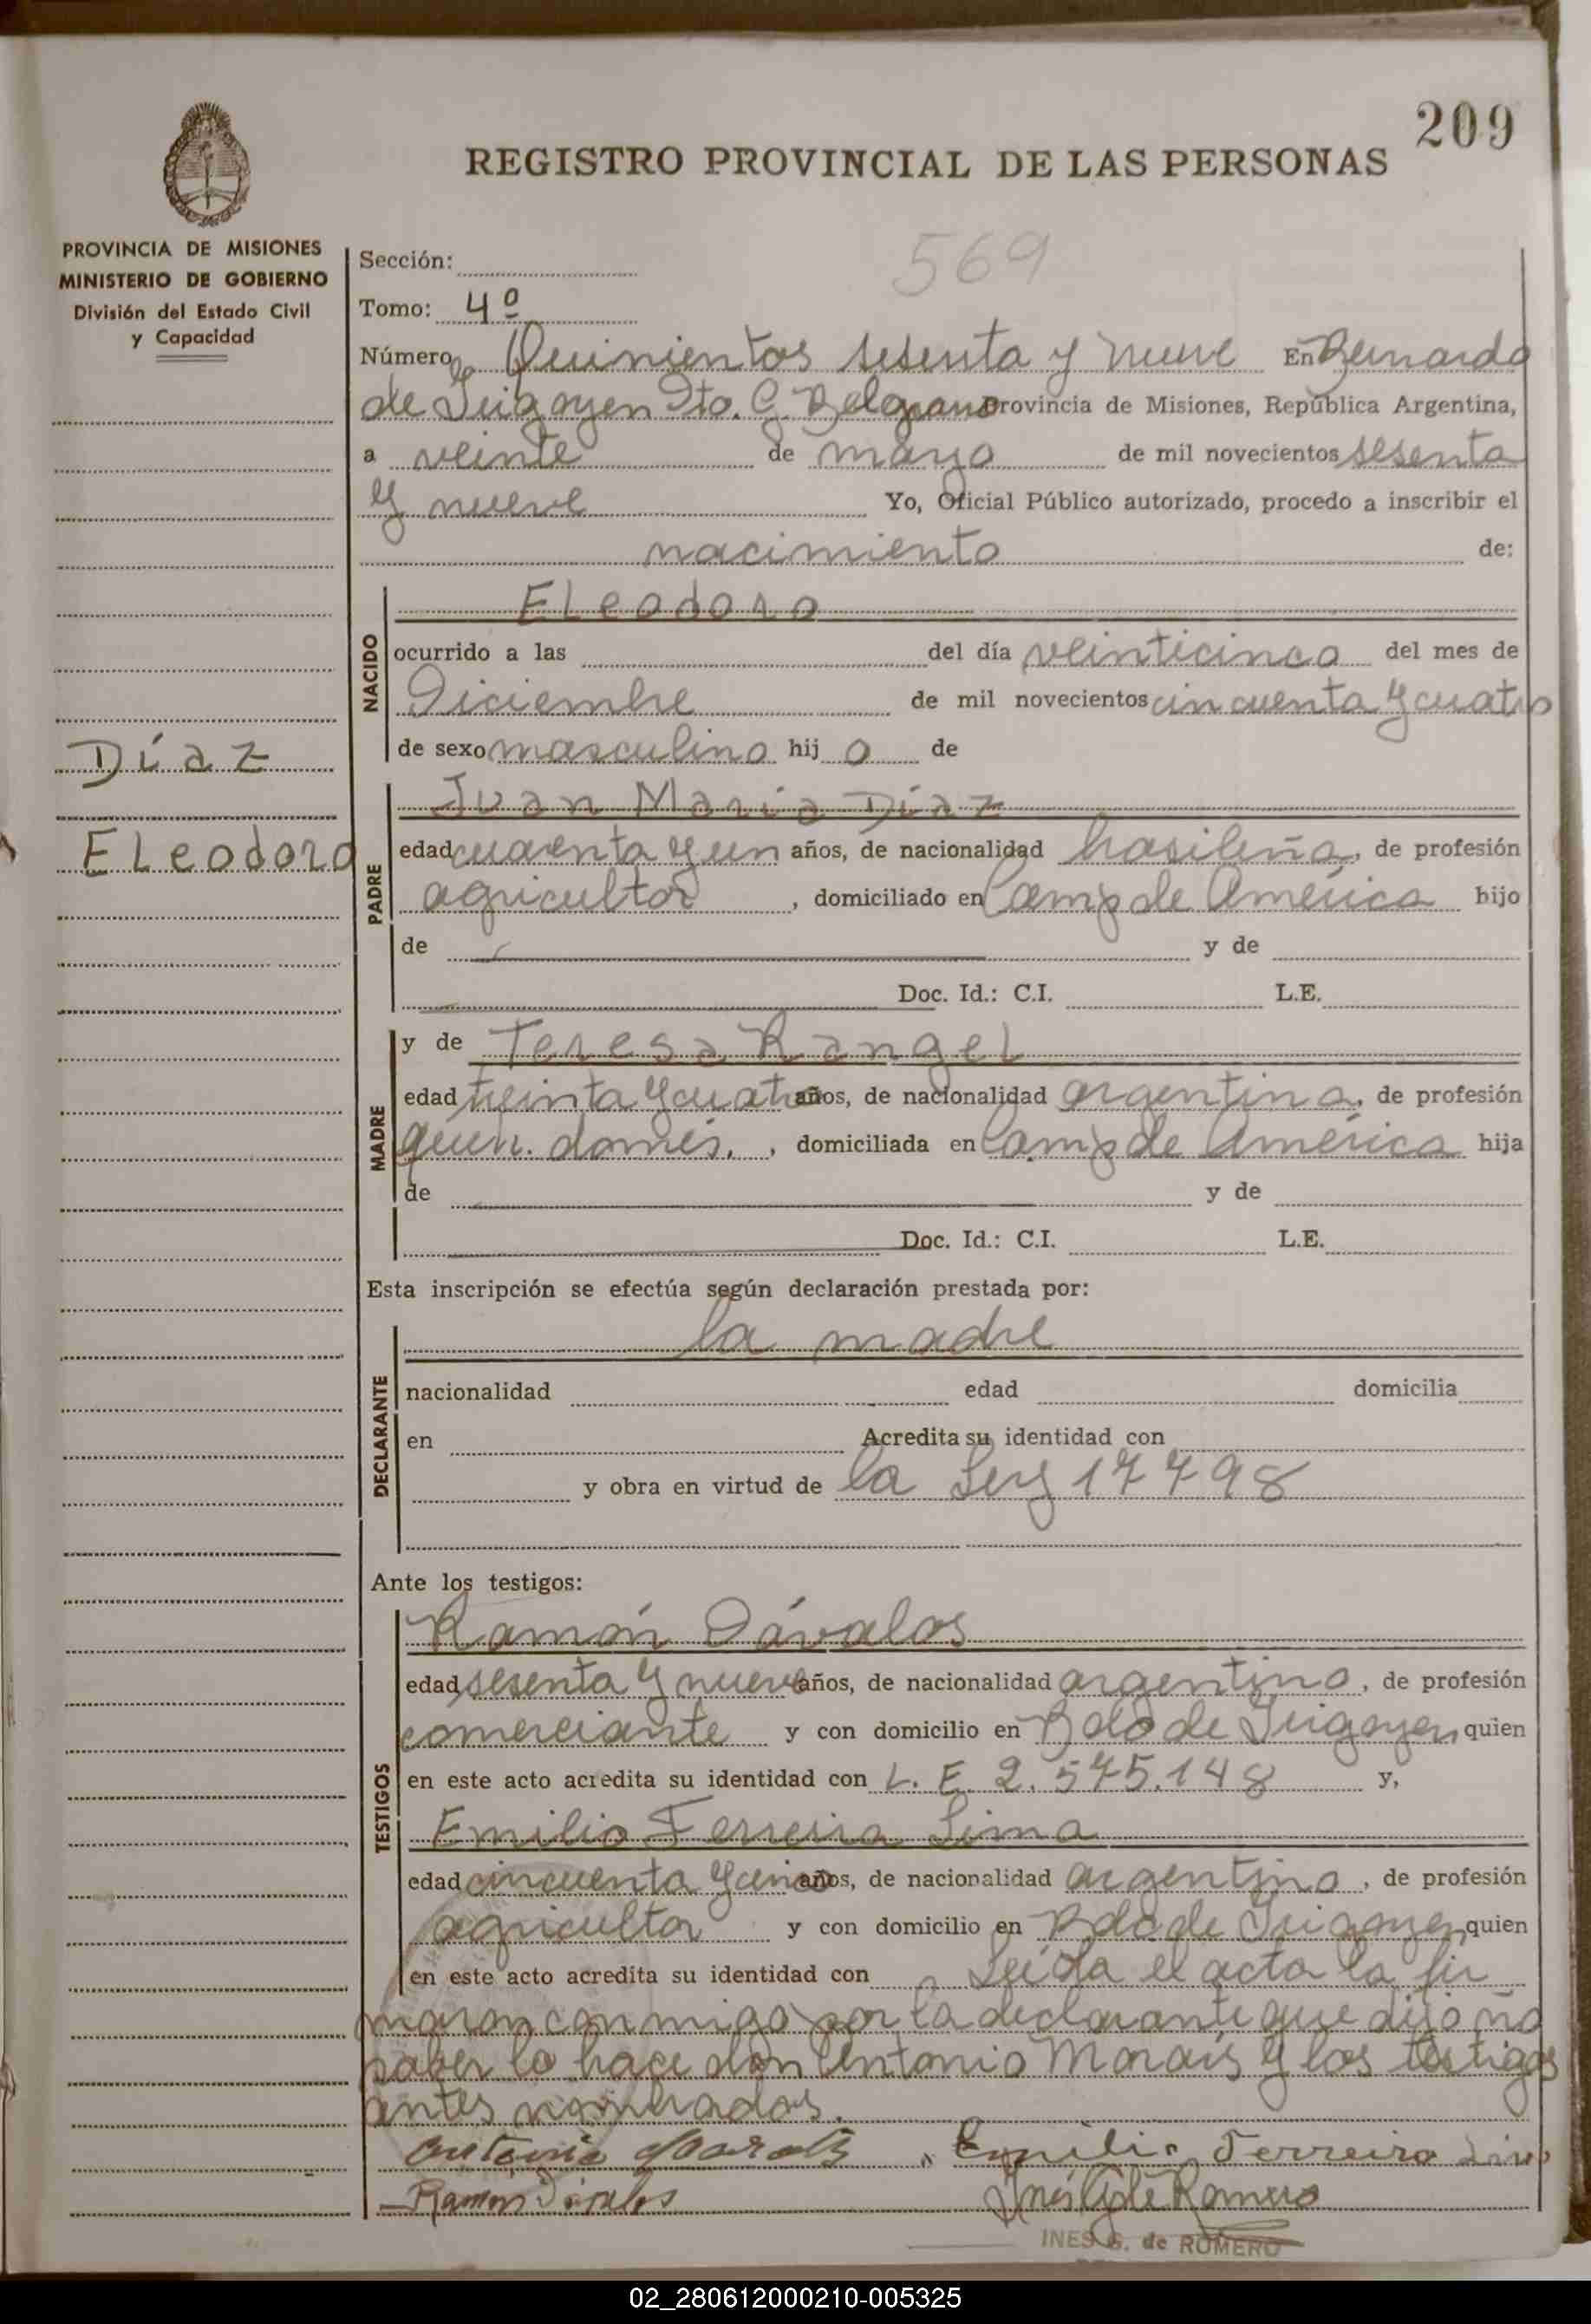 209
REGISTRO PROVINCIAL DE LAS PERSONAS
PROVINCIA DE MISIONES
MINISTERIO DE GOBIERNO
División del Estado Civil
y Capacidad
569
Sección:
Tomo: 4º
Número Quinientos sesenta y nueve En Bernardo
de Irigoyen Dto. G. Belgrano Provincia de Misiones, República Argentina,
a veinte de mayo de mil novecientos sesenta
y nueve Yo, Oficial Público autorizado, procedo a inscribir el
nacimiento de:
NACIDO
ELeodoro
ocurrido a las del día veinticinco del mes de
Diciembre de mil novecientos cincuenta y cuatro
de sexo masculino hij o de
Díaz
ELeodoro
PADRE
Juan María Díaz
edad cuarenta y un años, de nacionalidad brasileña, de profesión
agricultor, domiciliado en Camp de América hijo
de y de
Doc. Id.: C.I. L.E.
MADRE
y de Teresa Rangel
edad treinta y cuatro años, de nacionalidad argentina, de profesión
queh. domés., domiciliada en Camp de América hija
de y de
Doc. Id.: C.I. L.E.
Esta inscripción se efectúa según declaración prestada por:
DECLARANTE
la madre
nacionalidad edad domicilia
en Acredita su identidad con
y obra en virtud de la Ley 17798
Ante los testigos:
TESTIGOS
Ramón Dávalos
edad sesenta y nueve años, de nacionalidad argentino, de profesión
comerciante y con domicilio en Bdo de Irigoyen, quien
en este acto acredita su identidad con L. E. 2.575.148 y,
Emilio Ferreira Lima
edad cincuenta y cinco años, de nacionalidad argentino, de profesión
agricultor y con domicilio en Bdo de Irigoyen, quien
en este acto acredita su identidad con Leída el acta la fir
maron conmigo por la declarante que dijo no
saber lo hace don Antonio Morais y los testigos
antes nombrados.
Antonio Morais Emilio Ferreira Lima
Ramon Dávalos Inés G de Romero
INES G. de ROMERO
02_280612000210-005325